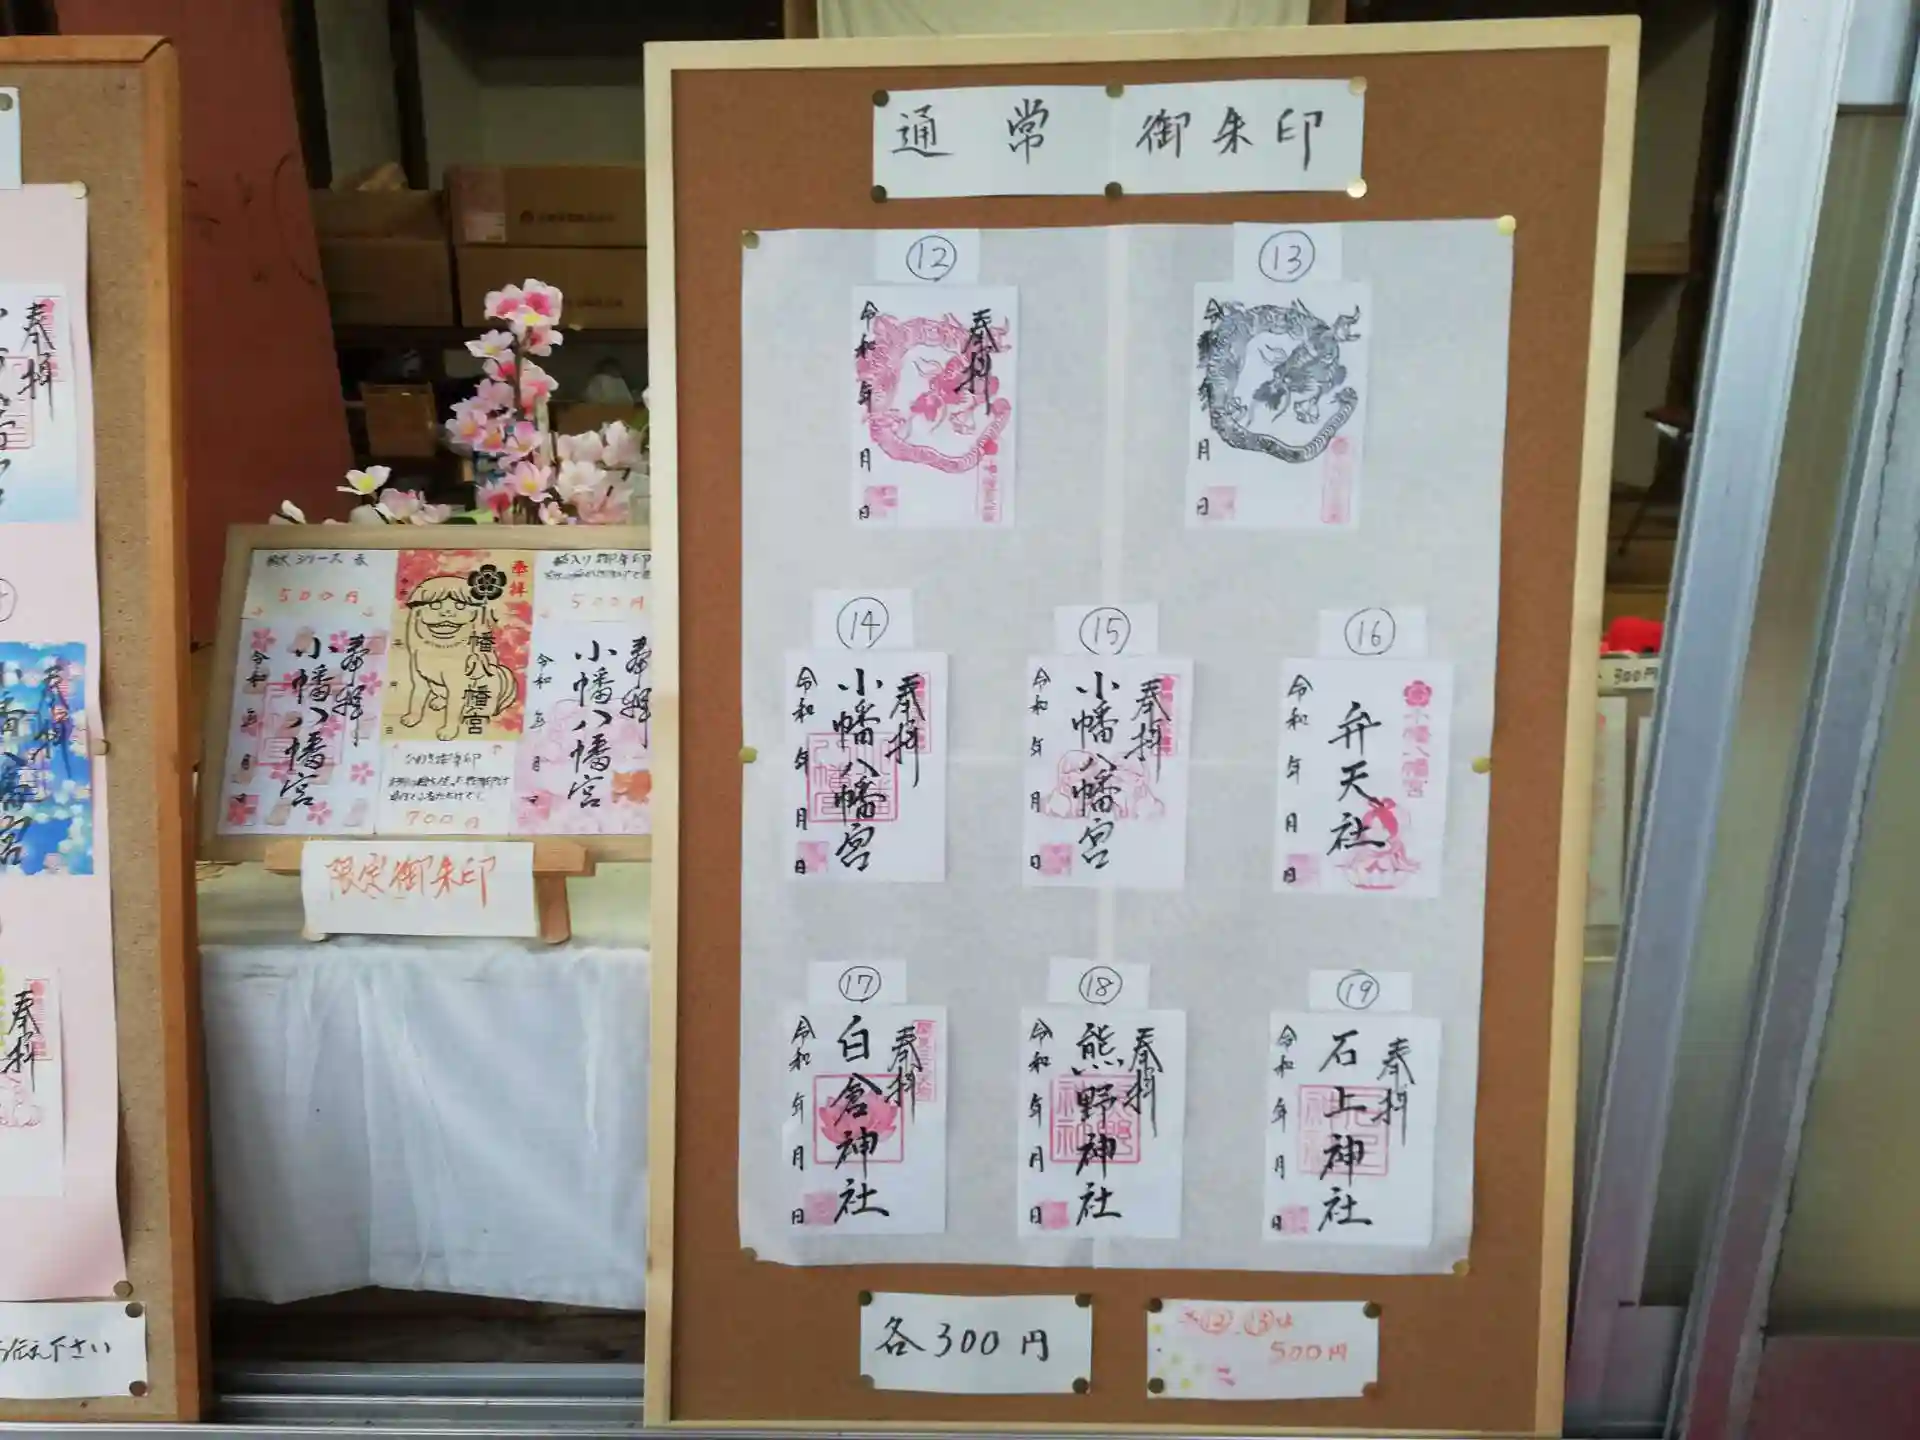 通常 御朱印
⑫
奉拝
令和 年 月 日
⑬
令和 年 月 日
⑭
奉拝
小幡八幡宮
令和 年 月 日
⑮
奉拝
小幡八幡宮
令和 年 月 日
⑯
小幡八幡宮
弁天社
令和 年 月 日
⑰
奉拝
白倉神社
令和 年 月 日
⑱
奉拝
熊野神社
令和 年 月 日
⑲
奉拝
石上神社
令和 年 月 日
各300円
⑫、⑬は
500円
シリーズ
500円
奉拝
小幡八幡宮
令和 年 月
奉拝
小幡八幡宮
700円
500円
奉拝
小幡八幡宮
令和 年 月
限定御朱印
奉拝
奉拝
お伝え下さい
300円